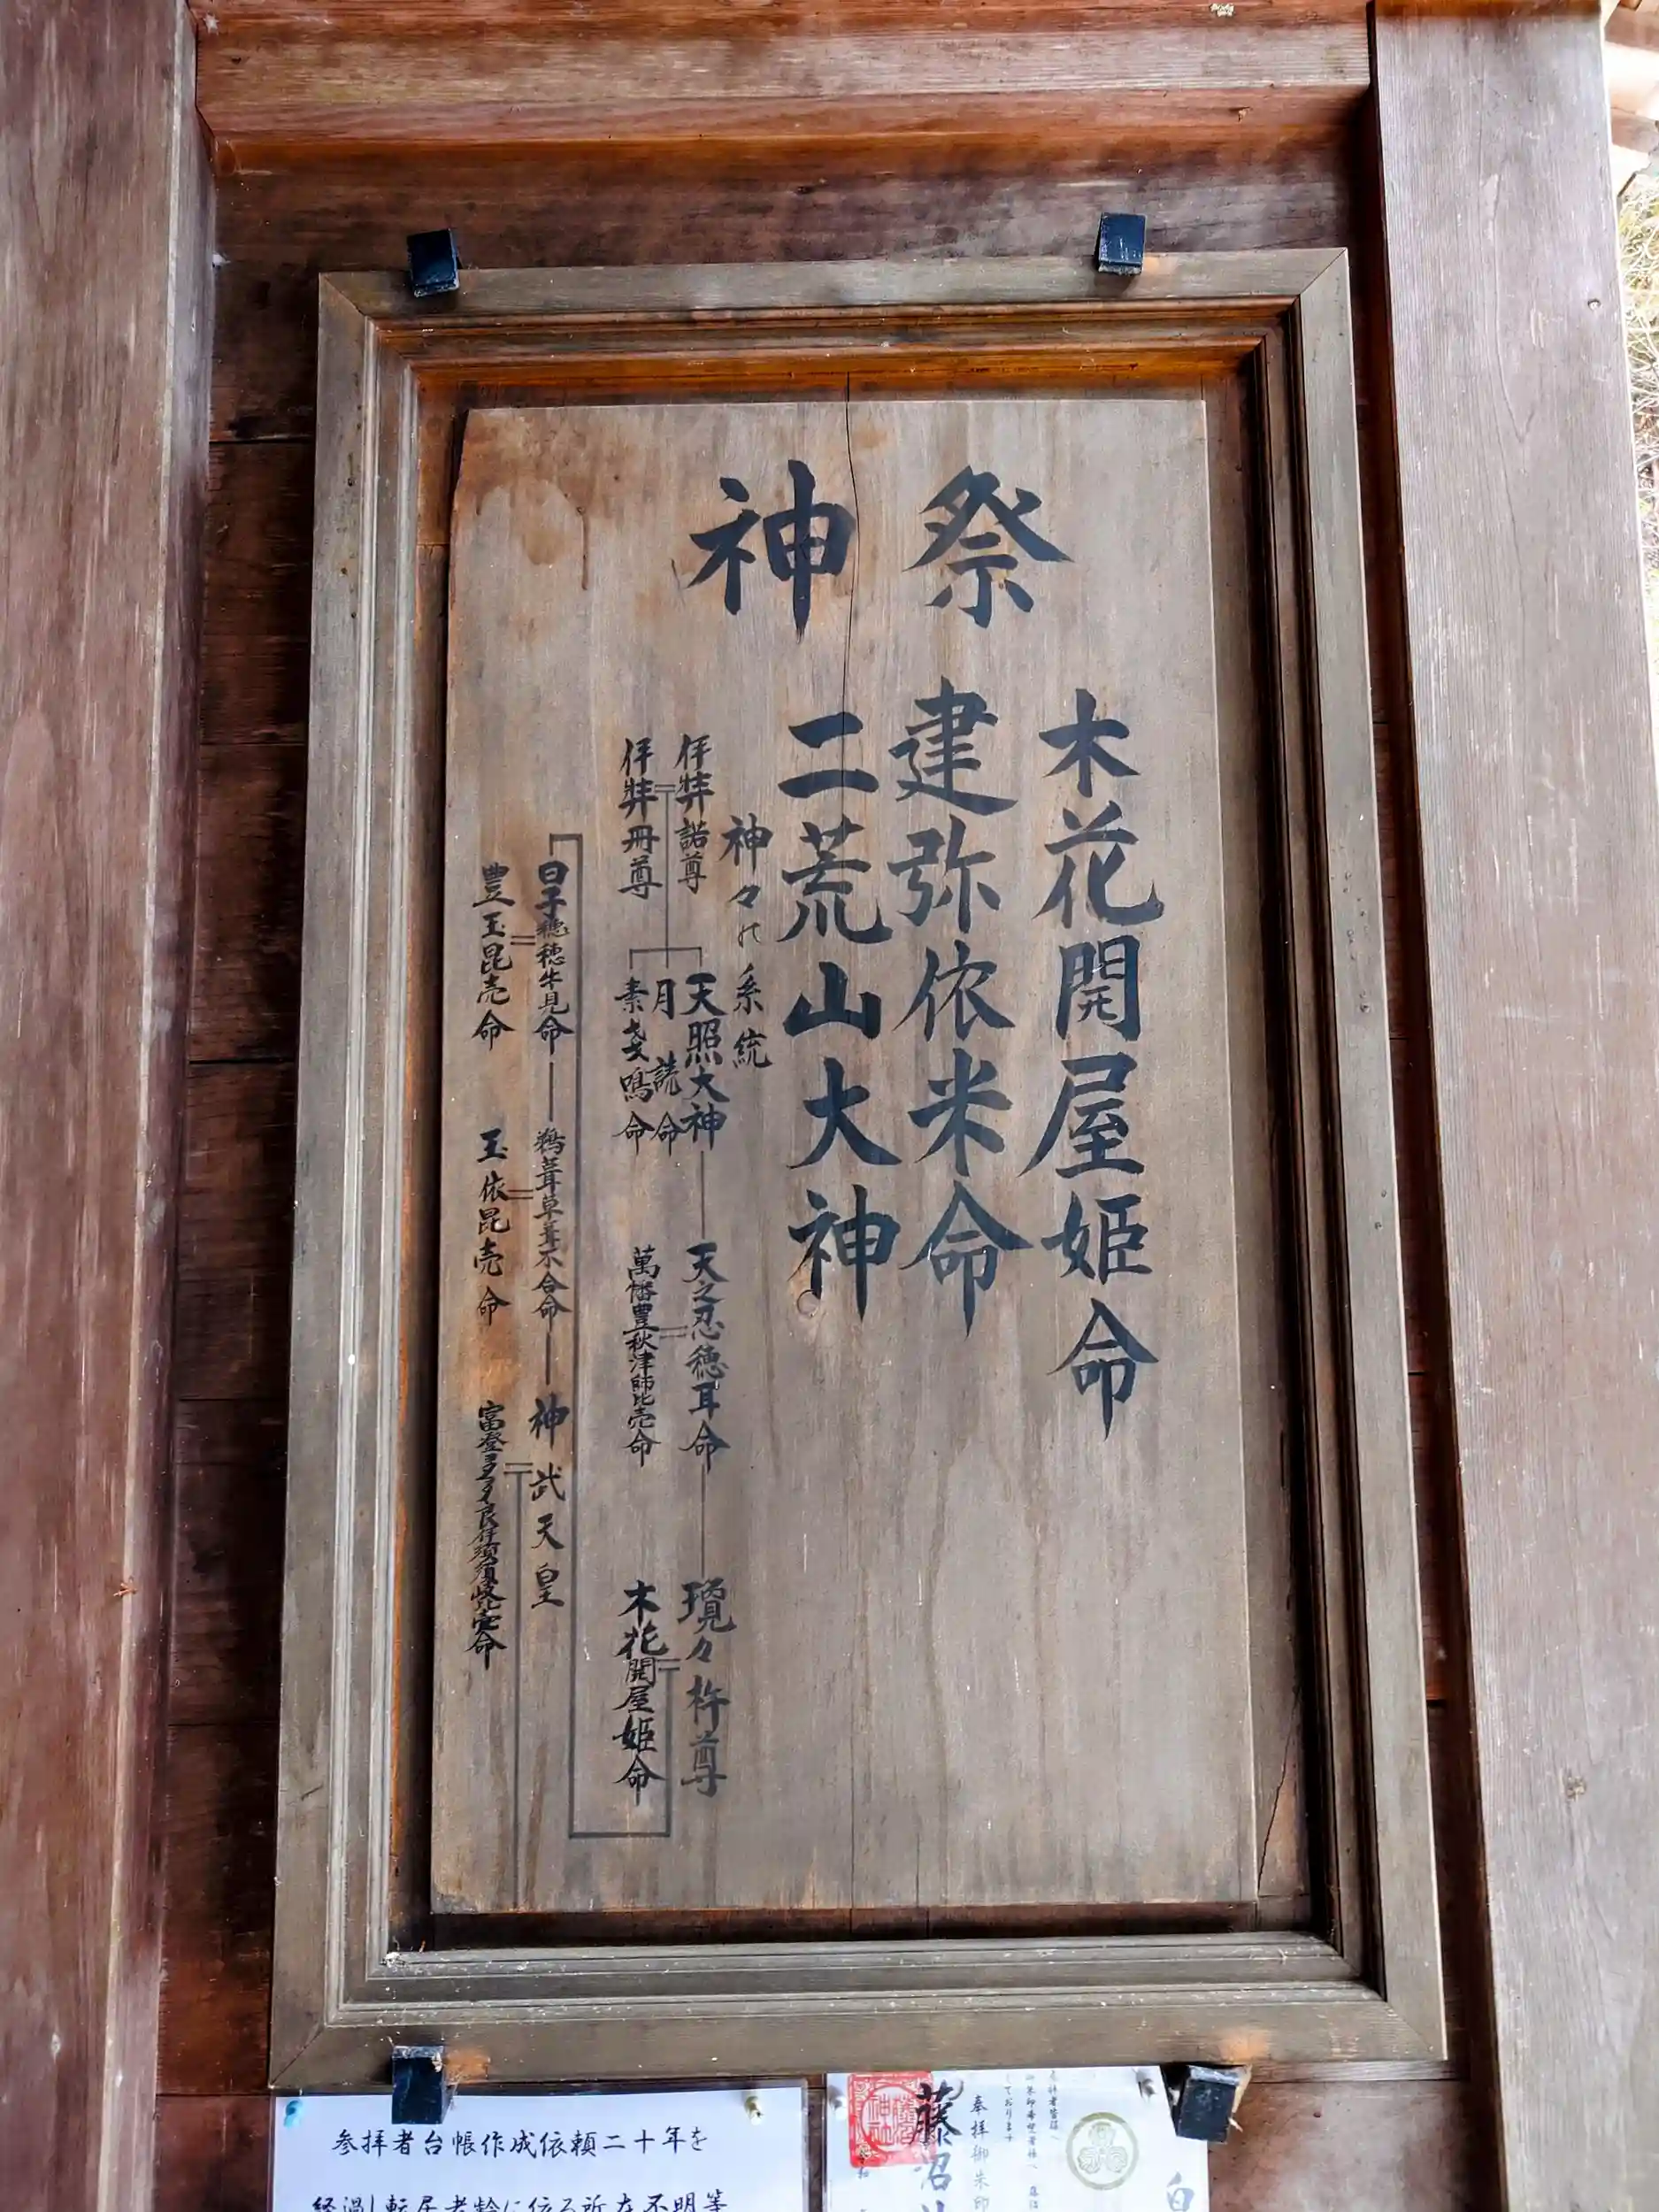 祭神
木花開屋姫命
建弥依米命
二荒山大神
神々の系統
伊弉諾尊
伊弉冊尊
天照大神
月読命
素戔鳴命
天之忍穂耳命
萬幡豊秋津師比売命
瓊々杵尊
木花開屋姫命
日子穂穂手見命
豊玉昆売命
鵜葺草葺不合命
玉依昆売命
神武天皇
参拝者台帳作成依頼二十年を
経過し転居老齢に依る所在不明等
奉拝御朱印
藤沼